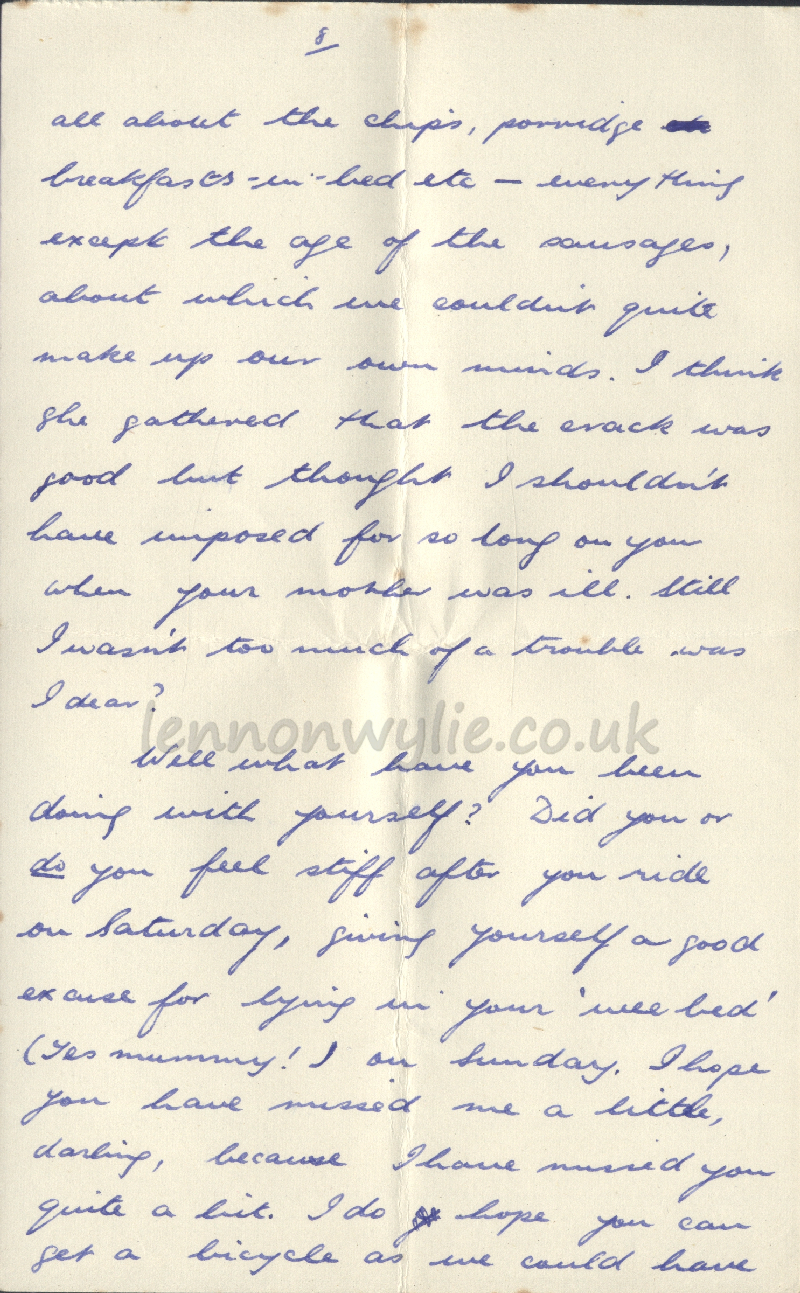 8
all about the chips, porridge
breakfasts-in-bed etc – everything
except the age of the sausages,
about which we couldn't quite
make up our own minds. I think
she gathered that the crack was
good but thought I shouldn't
have imposed for so long on you
when your mother was ill. Still
I wasn't too much of a trouble was
I dear?
lennonwylie.co.uk
Well what have you been
doing with yourself? Did you or
do you feel stiff after you ride
on Saturday, giving yourself a good
excuse for lying in your 'wee bed'
(Yes mummy!) on Sunday. I hope
you have missed me a little,
darling, because I have missed you
quite a bit. I do hope you can
get a bicycle as we could have